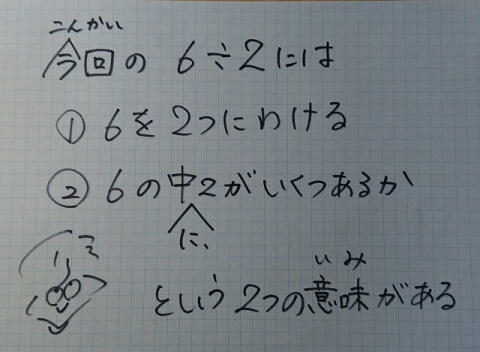 こんかい
今回の 6÷2には
① 6を2つにわける
② 6の中2がいくつあるか
に、
いみ
という2つの意味がある